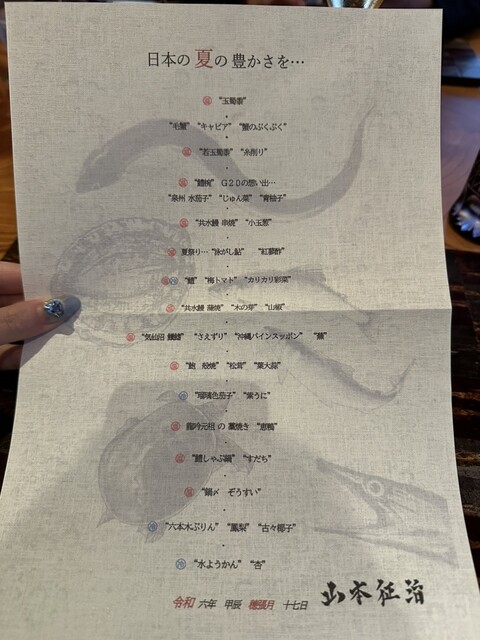 日本の 夏の 豊かさを…
温 "玉蜀黍"
"毛蟹" "キャビア" "蟹のぷくぷく"
温 "若玉蜀黍" "糸削り"
温 "鱧椀" G20の想い出…
"泉州 水茄子" "じゅん菜" "青柚子"
温 "共水鰻 串焼" "小玉葱"
夏祭り… "泳がし鮎" "紅蓼酢"
温 冷 "鱧" "梅トマト" "カリカリ彩菜"
温 "共水鰻 蒲焼" "木の芽" "山椒"
温 "気仙沼 鱶鰭" "さえずり" "沖縄パインスッポン"
温 "鮑 殻焼" "松茸" "葉大蒜"
冷 "瑠璃色茄子" "紫うに"
温 龍吟元祖 の 藁焼き "恵鴨"
温 "鱧しゃぶ鍋" "すだち"
温 "鍋〆 ぞうすい"
冷 "六本木ぷりん" "鳳梨" "古々椰子"
冷 "水ようかん" "杏"
令和 六年 甲辰 穂張月 十七日 山本征治